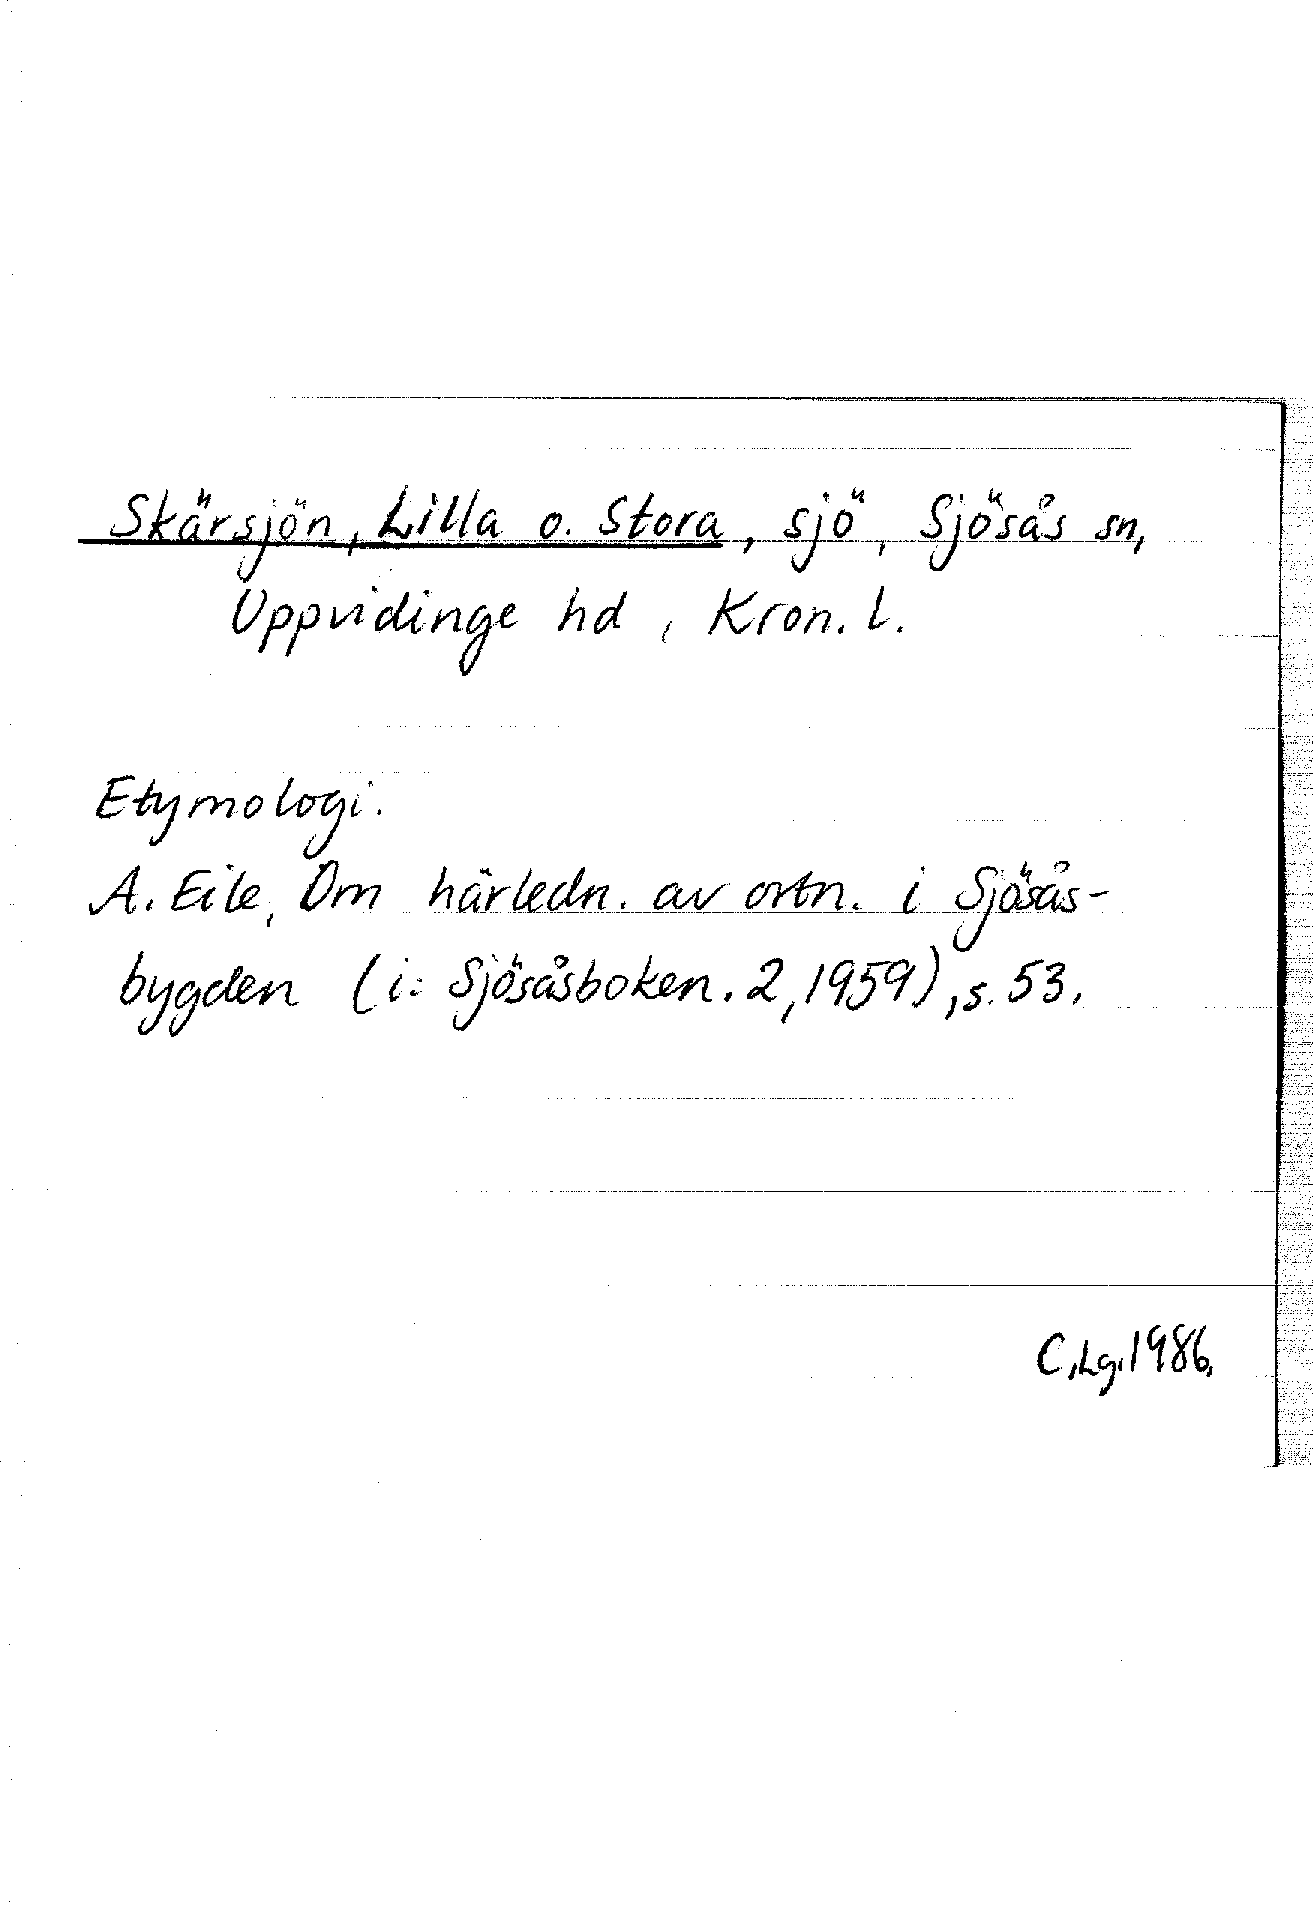 Skärsjön, Lilla o. Stora, sjö, Sjösås sn,
Uppvidinge hd, Kron. l.
Etymologi.
A. Eile, Om härledn. av ortn. i Sjösås-
bygden (i: Sjösåsboken. 2, 1959), s. 53.
C. Lg. 1986.